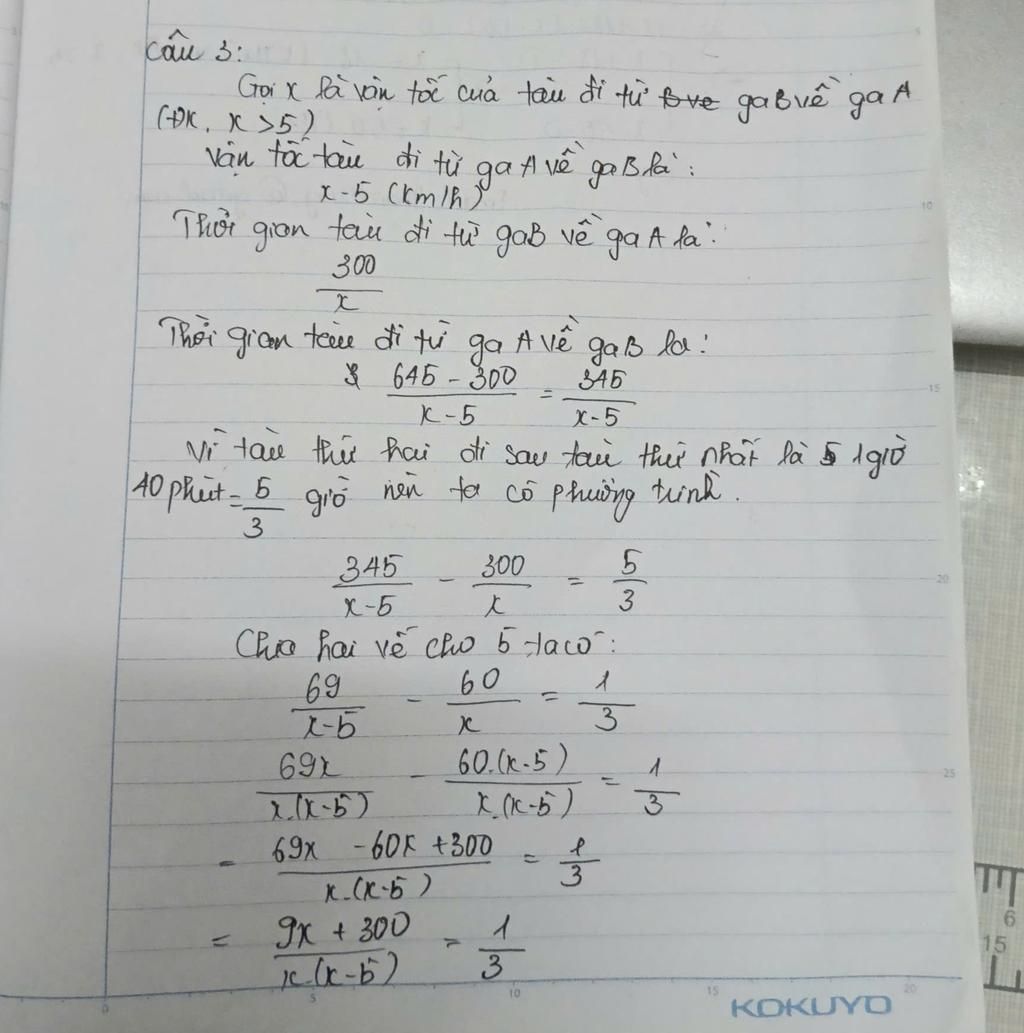 Câu 3:
Gọi x là vận tốc của tàu đi từ ga B về ga A
(ĐK, x > 5)
Vận tốc tàu đi từ ga A về ga B là:
x - 5 (km/h)
Thời gian tàu đi từ ga B về ga A là:
300/x
Thời gian tàu đi từ ga A về ga B là:
(645 - 300)/(x - 5) = 345/(x - 5)
Vì tàu thứ hai đi sau tàu thứ nhất là 1 giờ
40 phút = 5/3 giờ nên ta có phương trình.
345/(x - 5) - 300/x = 5/3
Chia hai vế cho 5 ta có:
69/(x - 5) - 60/x = 1/3
69x/(x.(x - 5)) - 60.(x - 5)/(x.(x - 5)) = 1/3
= (69x - 60x + 300)/(x.(x - 5)) = 1/3
= (9x + 300)/(x.(x - 5)) = 1/3
5 10 15 20
KOKUYO
10
15
20
25
6
15